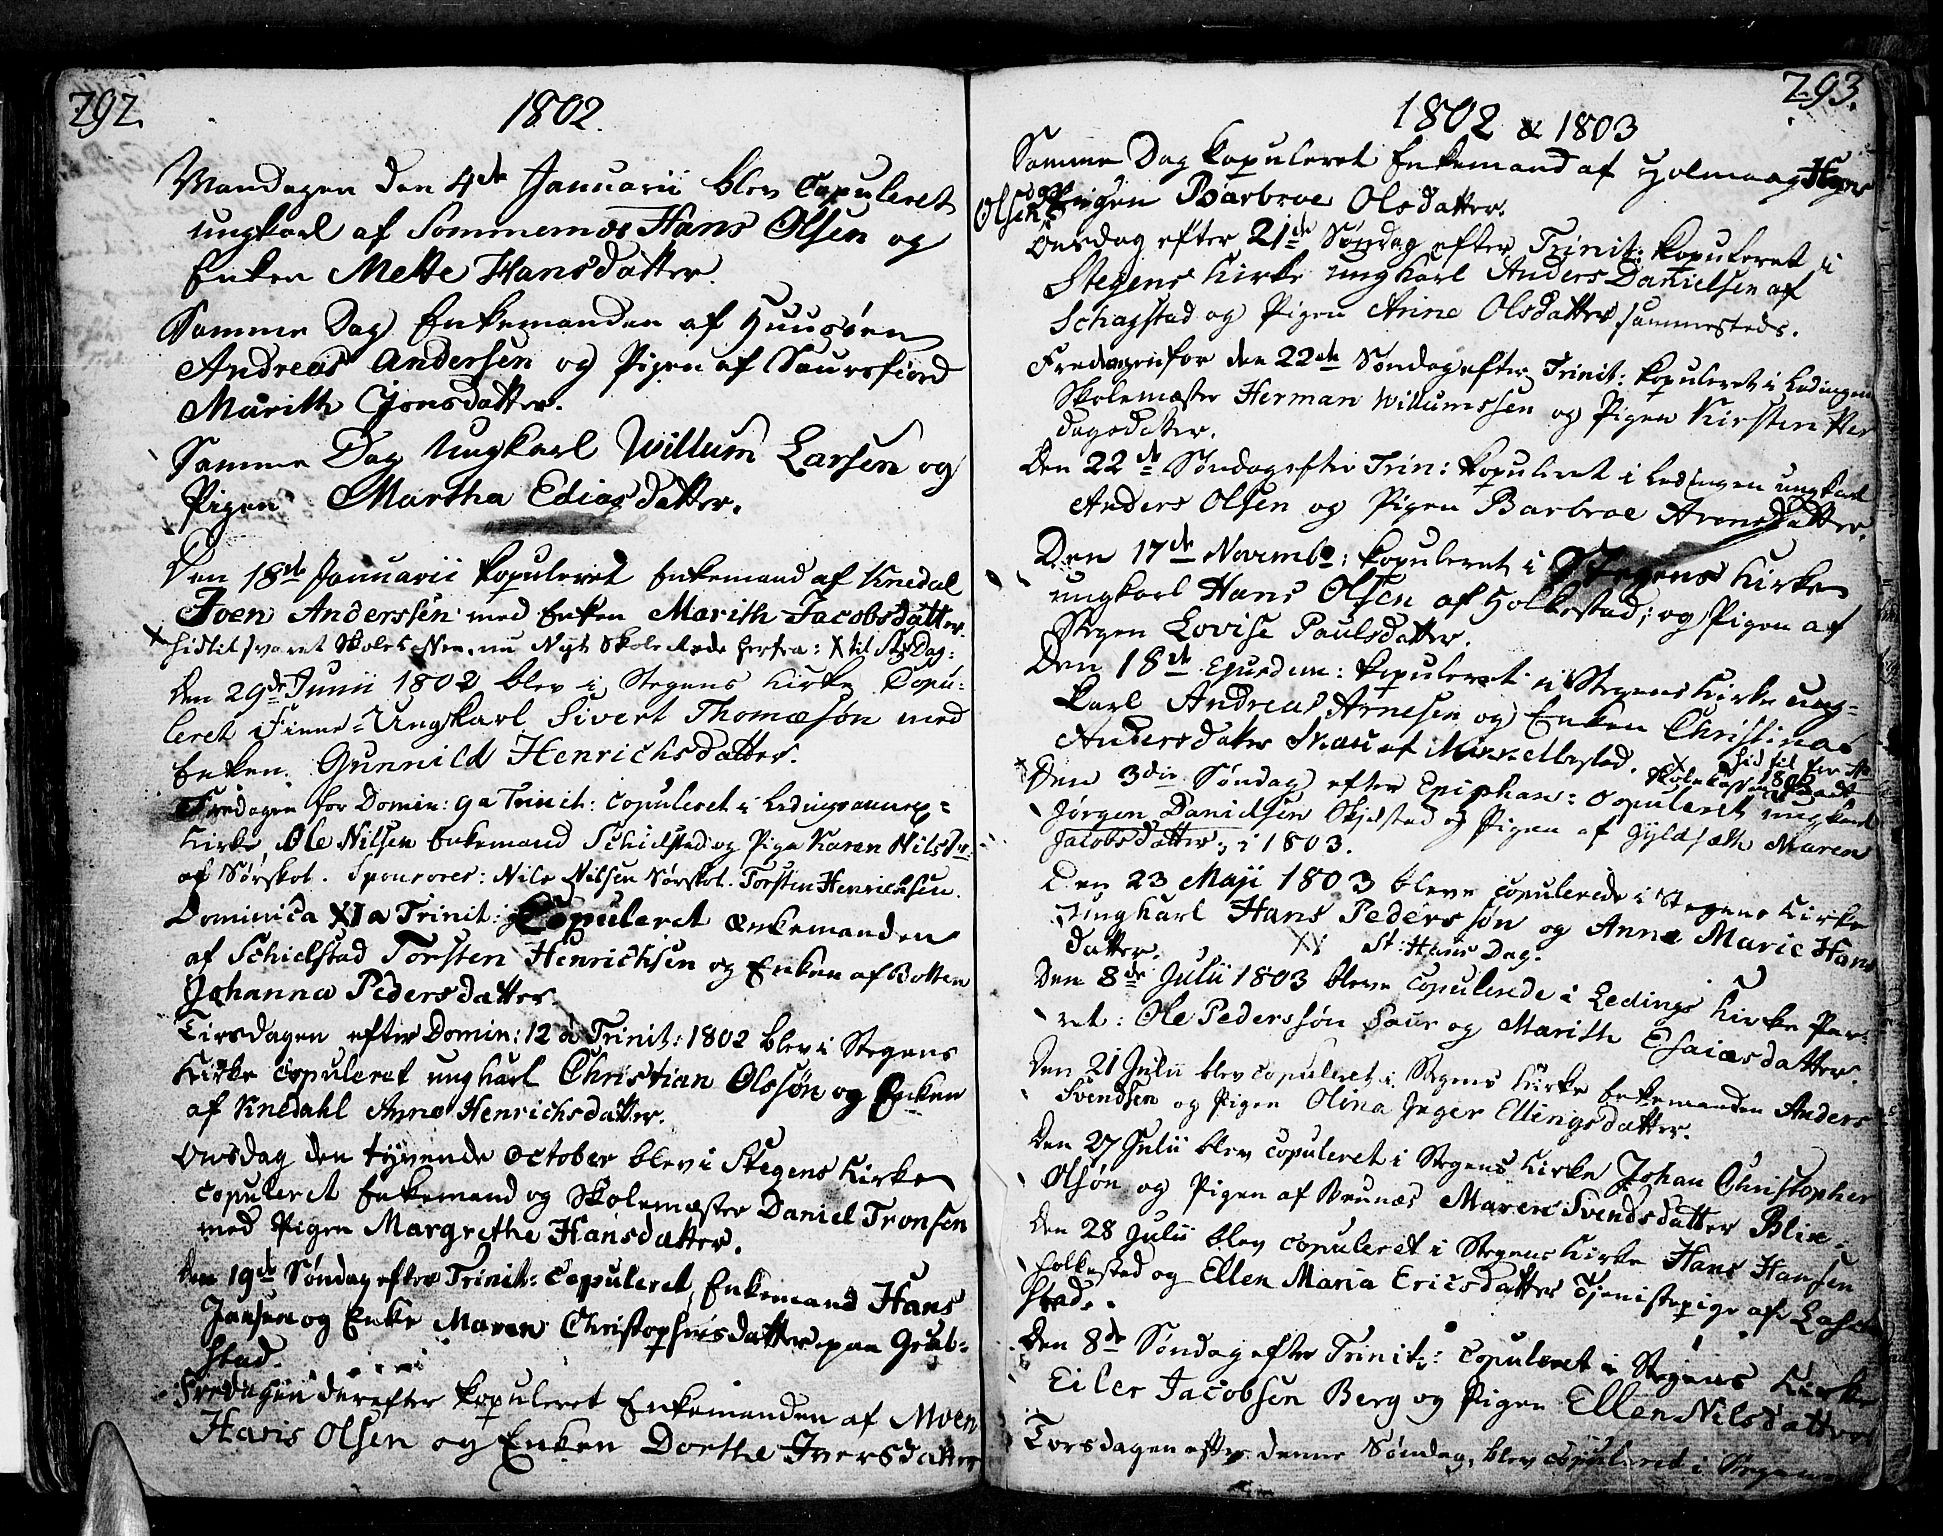 292.
1802.
Mandagen den 4de Januarii blev Copuleret
ungkarl af Sommernes Hans Olsen og
Enken Mette Hansdatter.
Samme Dag Enkemanden af Huusøen
Andreas Andersen og Pigen af Saursfiord
Marith Jonsdatter.
Samme Dag Ungkarl Willum Larsen og
Pigen Martha Ediasdatter.
Den 18de Januarii kopuleret Enkemand af Knedal
Iven Anderssen med Enken Marith Jacobsdatter.
hidtil svaret Skole nu Nyt herfra: X til St Dag:
Den 29de Junii 1802 blev i Stegens Kirke Copu-
leret Finne-Ungkarl Sivert Thomæsøn med
Enken Gunnild Henrichsdatter.
Fredagen for Domin: 9a Trinit: Copuleret i Ledings annex-
Kirke Ole Nilsen Enkemand Schielstad og Pige Karen Nilsdr:
af Sørskot. Sponsores: Nils Nilsen Sørskot. Torsten Henrichsen.
Dominica XIa Trinit: Copuleret Enkemanden
af Schielstad Torsten Henrichsen og Enken af Botten
Johanna Pedersdatter.
Tirsdagen efter Domin: 12 a Trinit: 1802 blev i Stegens
Kirke Copuleret ungkarl Christian Olssøn og Enken
af Knedahl Anne Henrichsdatter.
Onsdag den tyvende October blev i Stegens Kirke
Copuleret Enkemand og Skolemæster Daniel Tronsen
med Pigen Margrethe Hansdatter.
Den 19de Søndag efter Trinit: Copuleret, Enkemand Hans
Jansen og Enke Maren Christophersdatter paa Grøb-
stad.
Fredagen derefter kopuleret Enkemanden af Moen
Hans Olsen og Enken Dorthe Iversdatter
293.
1802 & 1803
Samme Dag kopuleret Enkemand af Holmaag Hans
Olsen og Pigen Barbroe Olsdatter.
Onsdag efter 21de Søndag efter Trinit: kopuleret i
Stegens Kirke ungkarl Anders Danielsen af
Schagstad og Pigen Anne Olsdatter sammesteds.
Fredagen for den 22de Søndag efter Trinit: kopuleret i Ledingen
Skolemæster Herman Willumssen og Pigen Kirsten Per
dagsdatter.
Den 22de Søndag efter Trin: kopuleret i Ledingen ungkarl
Anders Olsen og Pigen Barbroe Arnesdatter.
Den 17de Novembr: kopuleret i Stegens Kirke
ungkarl Hans Olsen af Holkestad; og Pigen af
Stegen Lovise Paulsdatter.
Den 18de Ejusdem: kopuleret i Stegens Kirke ung-
karl Andreas Arnesen og Enken Christina
Andersdater
Den 3die Søndag efter Epiphan: Copuleret ungkarl
Jørgen Danielsen Skjelstad og Pigen af Gyldsæth Maren
Jacobsdatter, i 1803.
Den 23 Maji 1803 bleve copulerede i Stegens Kirke
Ungkarl Hans Pederssøn og Anna Marie Hans
datter. St: Hans Dag.
Den 8de Julii 1803 bleve Copulerede i Ledings Kirke Par-
ret: Ole Pederssøn Saur og Marith Esaiasdatter.
Den 21 Julii blev copuleret i Stegens Kirke Enkemanden Anders
Svendsen og Pigen Olina Inger Ellingsdatter.
Den 27 Julii blev copuleret i Stegens Kirke Johan Christopher
Olsøn og Pigen af Brunæs Maren Svendsdatter Blix.
Den 28 Julii blev copuleret i Stegens Kirke Hans Hansen
Holkestad og Ellen Maria Ericsdatter Tjenistepige af
stad.
Den 8de Søndag efter Trinit: copuleret i Stegens Kirke
Eiler Jacobsen Berg og Pigen Ellen Nilsdatter
Torsdagen efter denne Søndag, blev copuleret i Stegens